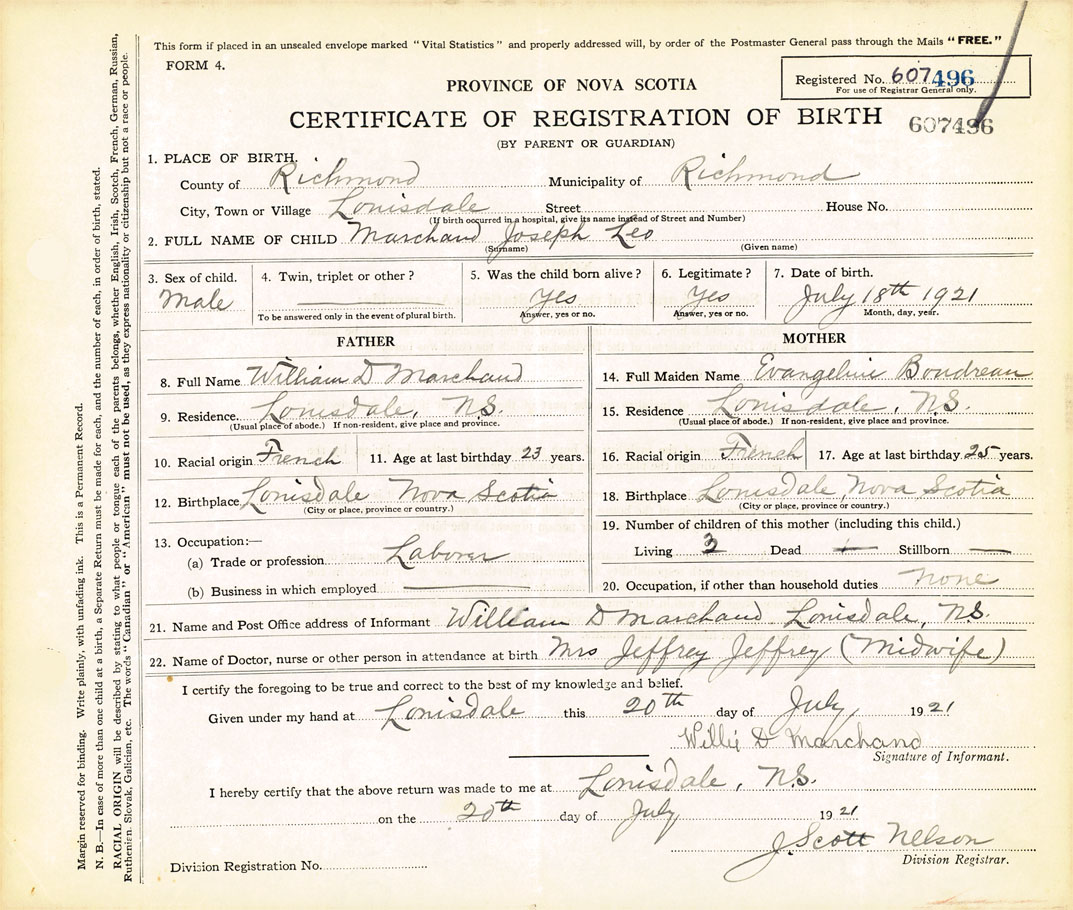 This form if placed in an unsealed envelope marked "Vital Statistics" and properly addressed will, by order of the Postmaster General pass through the Mails "FREE."
FORM 4.
Registered No. 607496
For use of Registrar General only.
PROVINCE OF NOVA SCOTIA
CERTIFICATE OF REGISTRATION OF BIRTH
607496
(BY PARENT OR GUARDIAN)
1. PLACE OF BIRTH.
County of Richmond Municipality of Richmond
City, Town or Village Louisdale Street House No.
(If birth occurred in a hospital, give its name instead of Street and Number)
2. FULL NAME OF CHILD Marchand Joseph Leo
(Surname) (Given name)
3. Sex of child. 4. Twin, triplet or other? 5. Was the child born alive? 6. Legitimate? 7. Date of birth.
Male Yes Yes July 18th 1921
To be answered only in the event of plural birth. Answer, yes or no. Answer, yes or no. Month, day, year.
FATHER
8. Full Name William D Marchand
9. Residence. Louisdale, N.S.
(Usual place of abode.) If non-resident, give place and province.
10. Racial origin French 11. Age at last birthday 23 years.
12. Birthplace Louisdale Nova Scotia
(City or place, province or country.)
13. Occupation:—
(a) Trade or profession Laborer
(b) Business in which employed
MOTHER
14. Full Maiden Name Evangeline Boudreau
15. Residence Louisdale, N.S.
(Usual place of abode.) If non-resident, give place and province.
16. Racial origin French 17. Age at last birthday 25 years.
18. Birthplace Louisdale, Nova Scotia
(City or place, province or country.)
19. Number of children of this mother (including this child.)
Living Dead Stillborn —
20. Occupation, if other than household duties none
21. Name and Post Office address of Informant William D Marchand Louisdale, N.S.
22. Name of Doctor, nurse or other person in attendance at birth Mrs Jeffrey Jeffrey (Midwife)
I certify the foregoing to be true and correct to the best of my knowledge and belief.
Given under my hand at Louisdale this 20th day of July 1921
Willie D Marchand
Signature of Informant.
I hereby certify that the above return was made to me at Louisdale, N.S.
on the 20th day of July 1921
J. Scott Nelson
Division Registrar.
Division Registration No.
Margin reserved for binding. Write plainly, with unfading ink. This is a Permanent Record.
N. B.—In case of more than one child at a birth, a Separate Return must be made for each, and the number of each, in order of birth, stated.
RACIAL ORIGIN will be described by stating to what people or tongue each of the parents belongs, whether English, Irish, Scotch, French, German, Russian,
Ruthenian, Slovak, Galician, etc. The words "Canadian" or "American" must not be used, as they express nationality or citizenship but not a race or people.